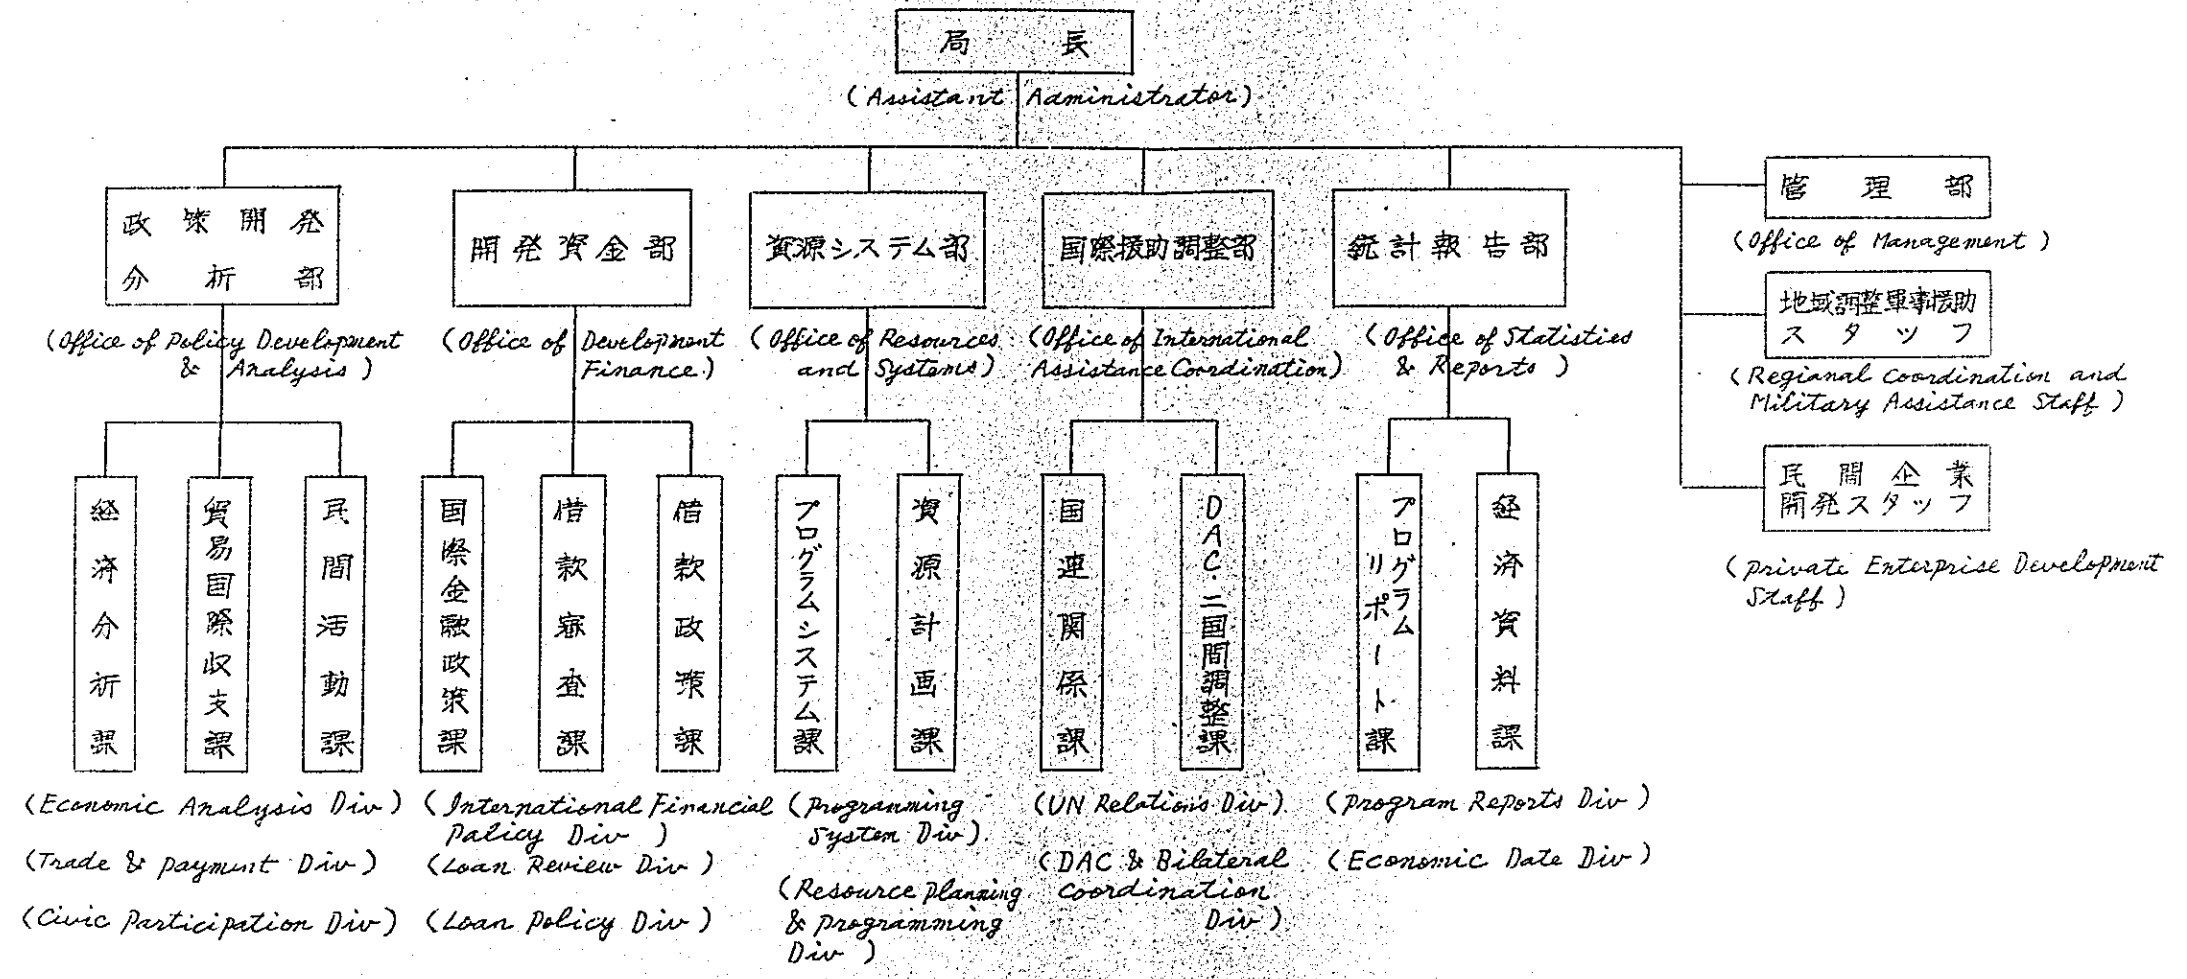 局長
(Assistant Administrator)
政策開発
分析部
(Office of Policy Development
& Analysis)
開発資金部
(Office of Development
Finance.)
資源システム部
(Office of Resources
and Systems)
国際援助調整部
(Office of International
Assistance Coordination)
統計報告部
(Office of Statisties
& Reports)
管理部
(Office of Management)
地域調整軍事援助
スタッフ
(Regianal Coordination and
Military Assistance Staff)
民間企業
開発スタッフ
(Private Enterprise Development
Staff)
経済分析課
貿易国際収支課
民間活動課
国際金融政策課
借款審査課
借款政策課
プログラムシステム課
資源計画課
国連関係課
DAC・二国間調整課
プログラム
リポート課
経済資料課
(Economic Analysis Div)
(Trade & Payment Div)
(Civic Participation Div)
(International Financial
Palicy Div)
(Loan Review Div)
(Loan Policy Div)
(Programming
System Div)
(Resource Planning
& Programming
Div)
(UN Relations Div)
(DAC & Bilateral
Coordination
Div)
(Program Reports Div)
(Economic Date Div)